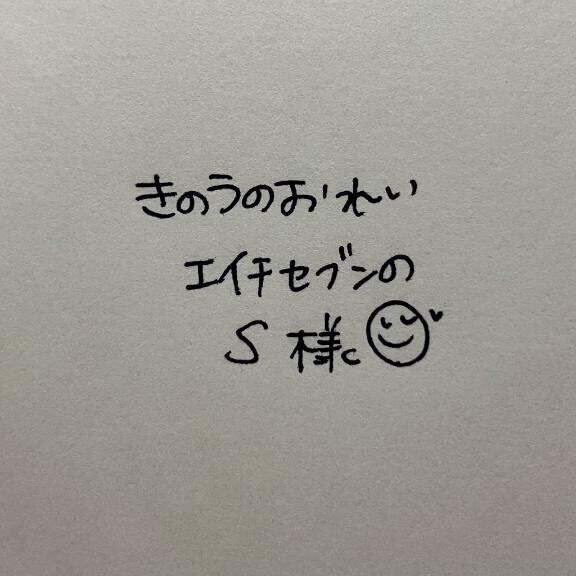 きのうのおれい
エイチセブンの
S 様